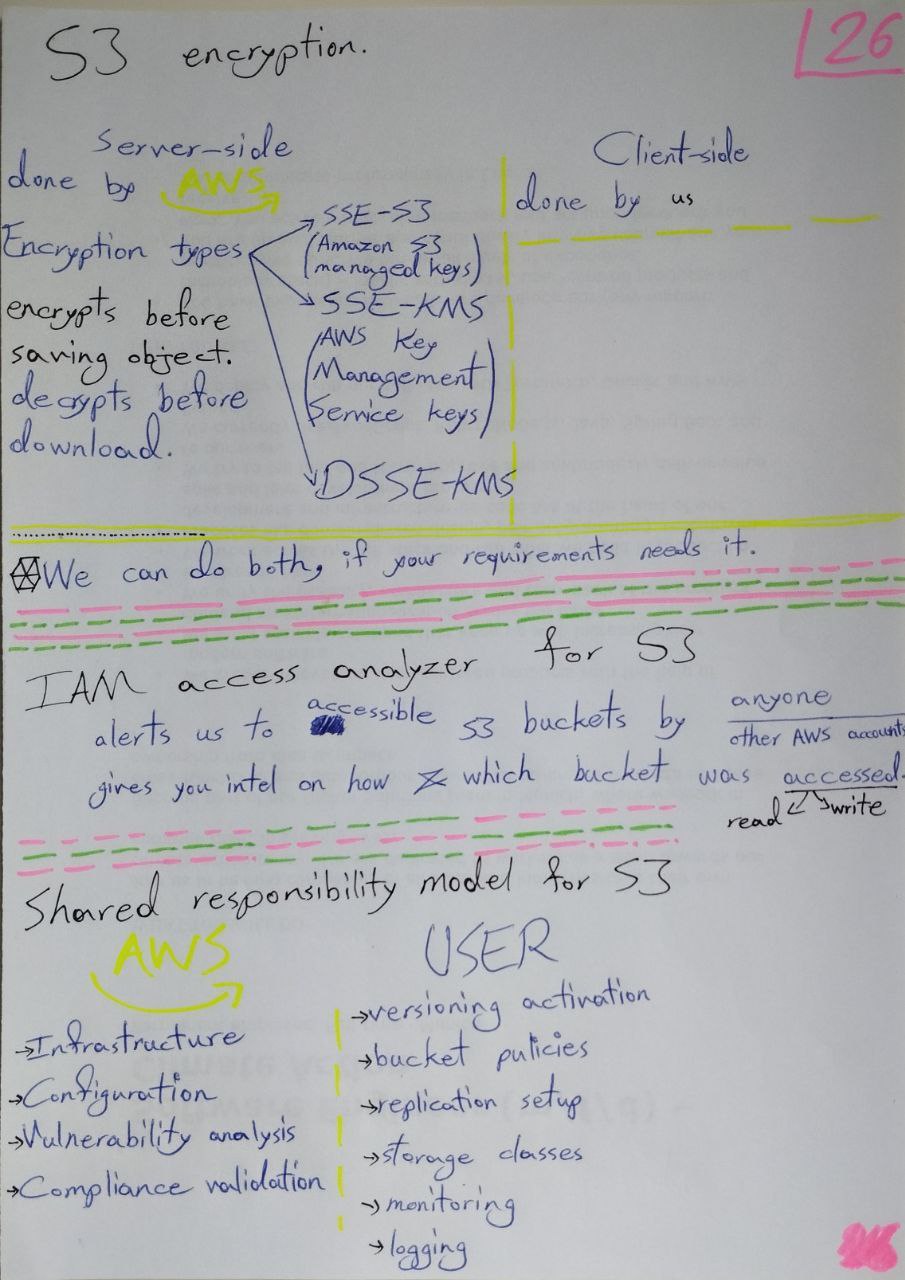 S3 encryption.
26
Server-side
done by AWS
Encryption types
SSE-S3
(Amazon S3
managed keys)
SSE-KMS
(AWS Key
Management
Service keys)
DSSE-KMS
encrypts before
saving object.
decrypts before
download.
Client-side
done by us
We can do both, if your requirements needs it.
IAM access analyzer for S3
alerts us to accessible S3 buckets by anyone
other AWS accounts
gives you intel on how & which bucket was accessed.
read write
Shared responsibility model for S3
AWS
→Infrastructure
→Configuration
→Vulnerability analysis
→Compliance validation
USER
→versioning activation
→bucket pulicies
→replication setup
→storage classes
→monitoring
→logging